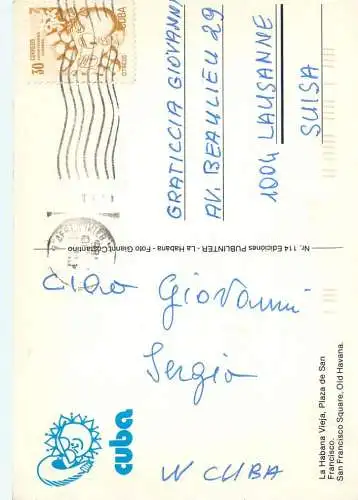 Ciao Giovanni
Sergio
W CUBA
GRATICCIA GIOVANNI
AV. BEAULIEU 29
1004 LAUSANNE
SUISA
Nr. 114 Ediciónes PUBLINTER - La Habana - Foto Gianni Costantino
La Habana Vieja, Plaza de San
Francisco.
San Francisco Square, Old Havana.
cuba
30
CORREOS
CUBA